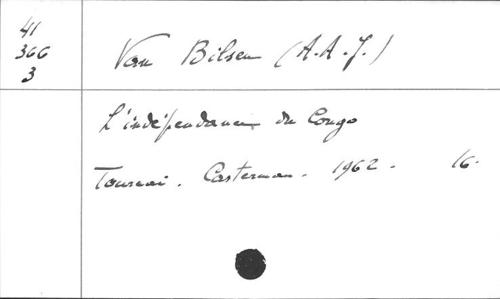 41
366
3
Van Bilsen (A.A.J.)
L'indépendance du Congo
Tournai. Casterman. 1962. 16.